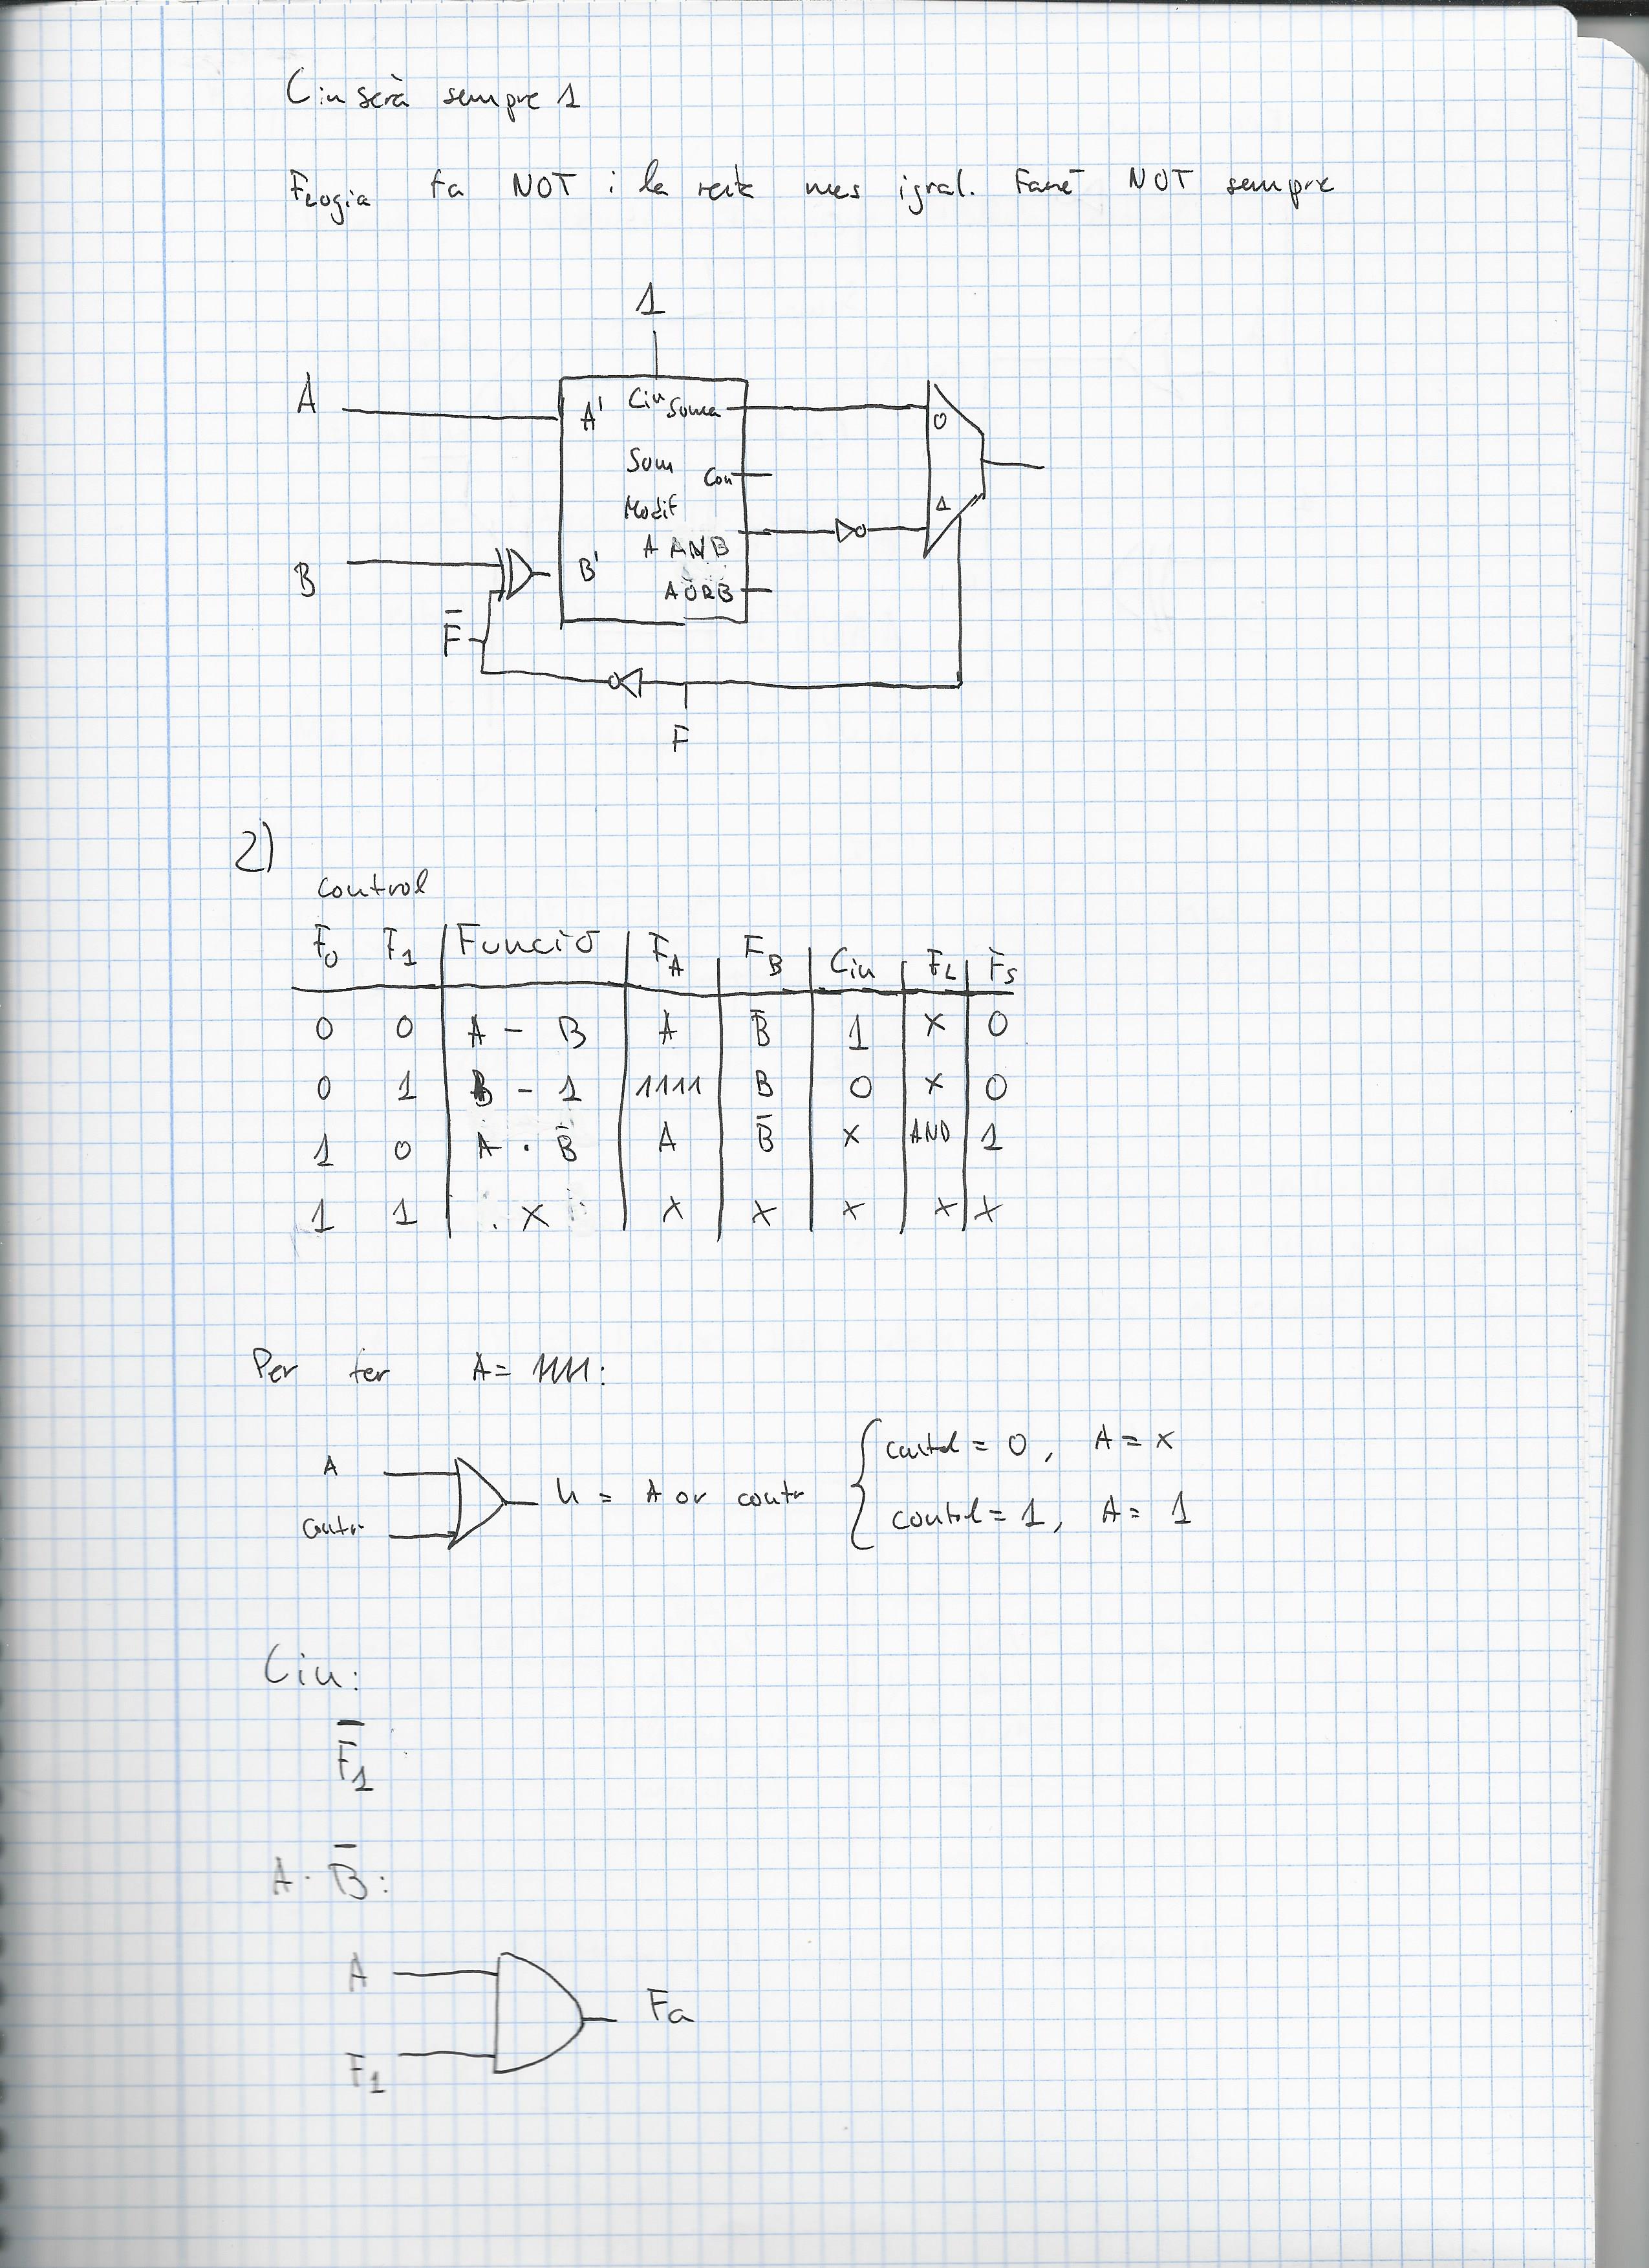 Cin serà sempre 1
FLogia fa NOT i la resta mes igual. Faré NOT sempre
1
A
A' Cin Suma
Sum
Modif
Cou
A AND B
A OR B
B
B'
0
1
F̄
F
2)
control
F0 F1 Funció FA FB Cin FL FS
0 0 A - B A B̄ 1 x 0
0 1 B - 1 1111 B 0 x 0
1 0 A · B̄ A B̄ x AND 1
1 1 x x x x x x
Per fer A = 1111:
A
Contr
= A or contr
control = 0, A = x
control = 1, A = 1
Cin:
F̄1
A · B̄:
A
F1
Fa